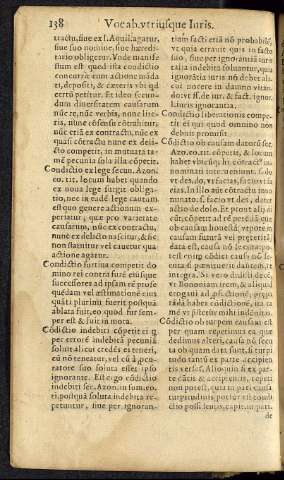 138 Vocab. vtriusque Iuris.
tractu, siue ex l. Aquil. agatur,
siue suo nomine, siue hæredi-
tario obligetur. Vnde manife-
stum est quod ista condictio
concurrit cum actione mãda
ti, depositi, & cæteris vbi qd
certũ petitur. Et ideo secun-
dum diuersitatem causarum
nũc re, nũc verbis, nunc lite-
ris, nũc cõsensu cõstituitur,
nũc etiã ex contractu, nũc ex
quasi cõtractu nunc ex delic-
cto competit, in mutuata ta-
mẽ pecunia sola illa cõpetit.
Condictio ex lege secun. Azon.
eo. tit. locum habet quando
ex noua lege surgit obliga-
tio, nec in eadẽ lege cautum
est quo genere actionum ex-
periatur, quæ pro varietate
causarum, nũc ex contractu,
nunc ex delicto nascitur, & sic
non statuitur vel cauetur qua
actione agatur.
Condictio furtiua competit do
mino rei contra furẽ eiusque
successores ad ipsam rẽ prose
quẽdam vel æstimationẽ eius
quãti plurimi fuerit postquã
ablata fuit, eo quod fur sem-
per est & fuit in mora.
Cõdictio indebiti cõpetit ei q
per errorẽ indebitã pecuniã
soluit alicui credẽs ex teneri,
cũ nõ teneatur, vel cũ à pcu-
ratore suo soluta esset ipso
ignorante. Est ergo cõdictio
indebiti sec. Azon. in sum. eo.
ti. postquã soluta indebita re-
petuntur, siue per ignoran-
tiam facti etiã nõ probabilẽ,
vt quia errauit quis in facto
suo, siue per ignorantiã iuris
talia indebita soluantur, quia
ignorãtia iuris nõ debet ali-
cui nocere in damno vitan-
do vt ff. de iur. & fact. ignor.
l. iuris ignorantia.
Condictio liberationis compe-
tit ei qui quod omnino non
debuit promisit.
Cõdictio ob causam datorũ sec.
Azo. eo. tit. competit, & locum
habet vbicũq; hi contractus in
nominati interueniunt. s. do
vt des, do vt facias, facio vt fa-
cias. In illo aũt cõtractu inno-
minato, s. facio vt des, datur
actio de dolo. Et pront alij di-
cũt, cõpetit ad repetẽdũ datũ
ob causam honestã, vt pote ob
causam futurã vel præteritã,
data em est, causa nõ secuta po
test
secuta si pœnituerit dantem, re
integra. Si vero dixit is de
vt Bononiam irem, & aliquid
erogaui
rẽda habet cõdictionẽ, ita ta
mẽ vt pristctur mihi indemnis.
Cõdictio ob turpem causam est
per quam repetimus ea, quæ
dedimus alteri, causa nõ secu
ta ob quam data sunt, si turpi
tudo tamẽ ex parte accipien-
tis verset. Alioquin si ex par-
te dãtis & accipientis, repeti
tio negatur, quia in pari causa
turpitudinis, potior est condi-
tio possidentis, capit. in pari.
de